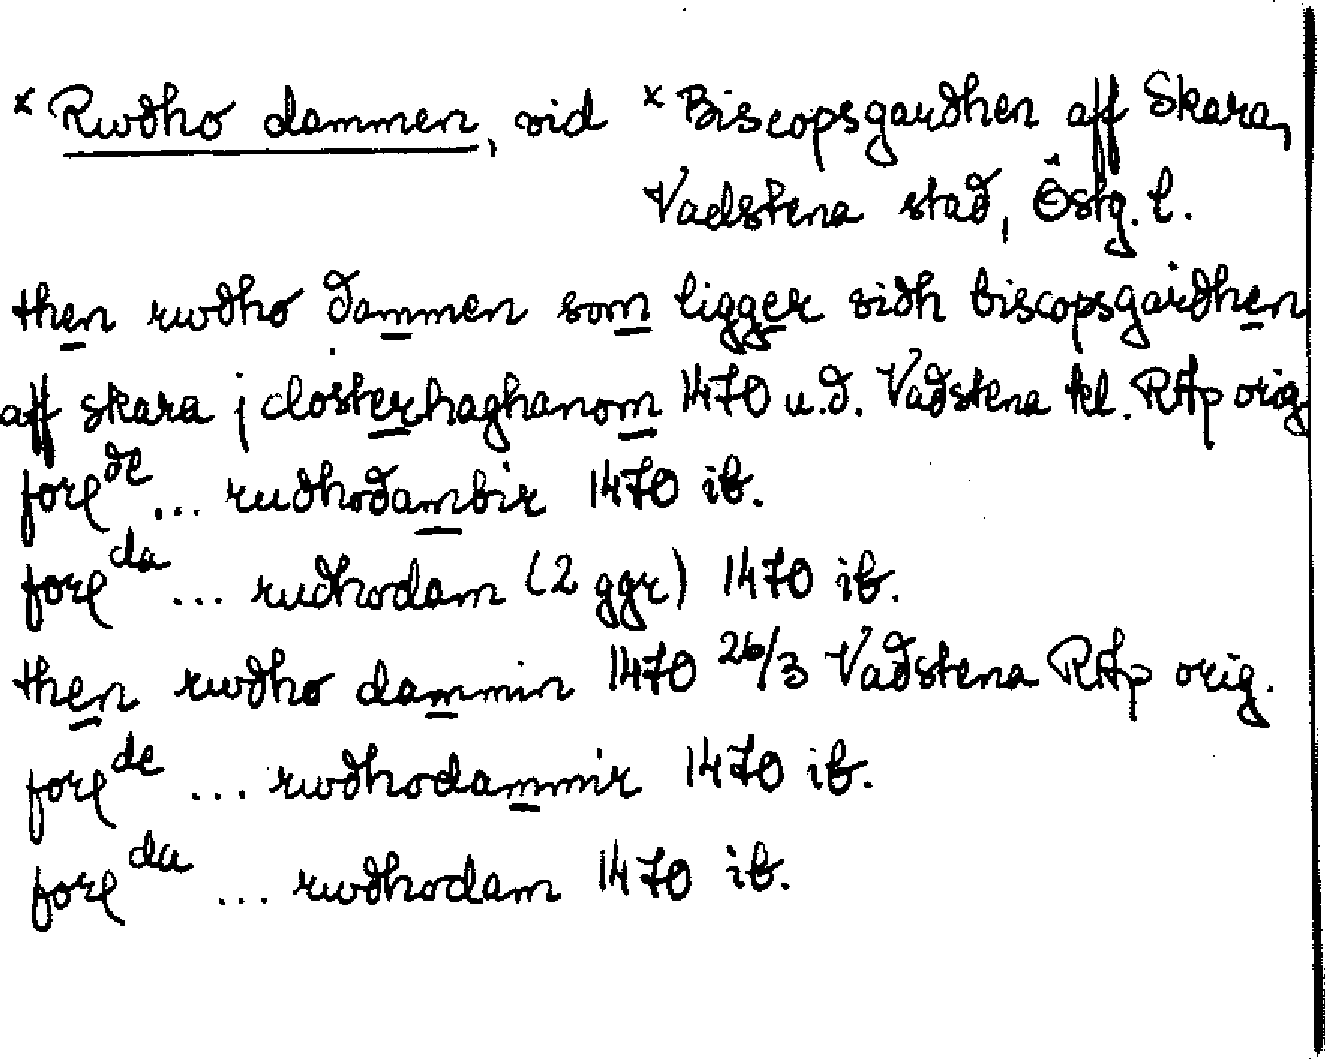 x Rwdho dammen, vid x Biscopsgardhen aff Skara,
Vadstena stad, Östg. l.
then rwdho dammen som ligger vidh biscopsgardhen
aff skara j closterhaghanom 1470 u.d. Vadstena kl. RAp orig
for{e^de} ... rudhodambir 1470 ib.
for{e^da} ... rudhodam (2 ggr) 1470 ib.
then rwdho dammin 1470 26/3 Vadstena RAp orig.
for{e^de} ... rwdhodammir 1470 ib.
for{e^da} ... rwdhodam 1470 ib.